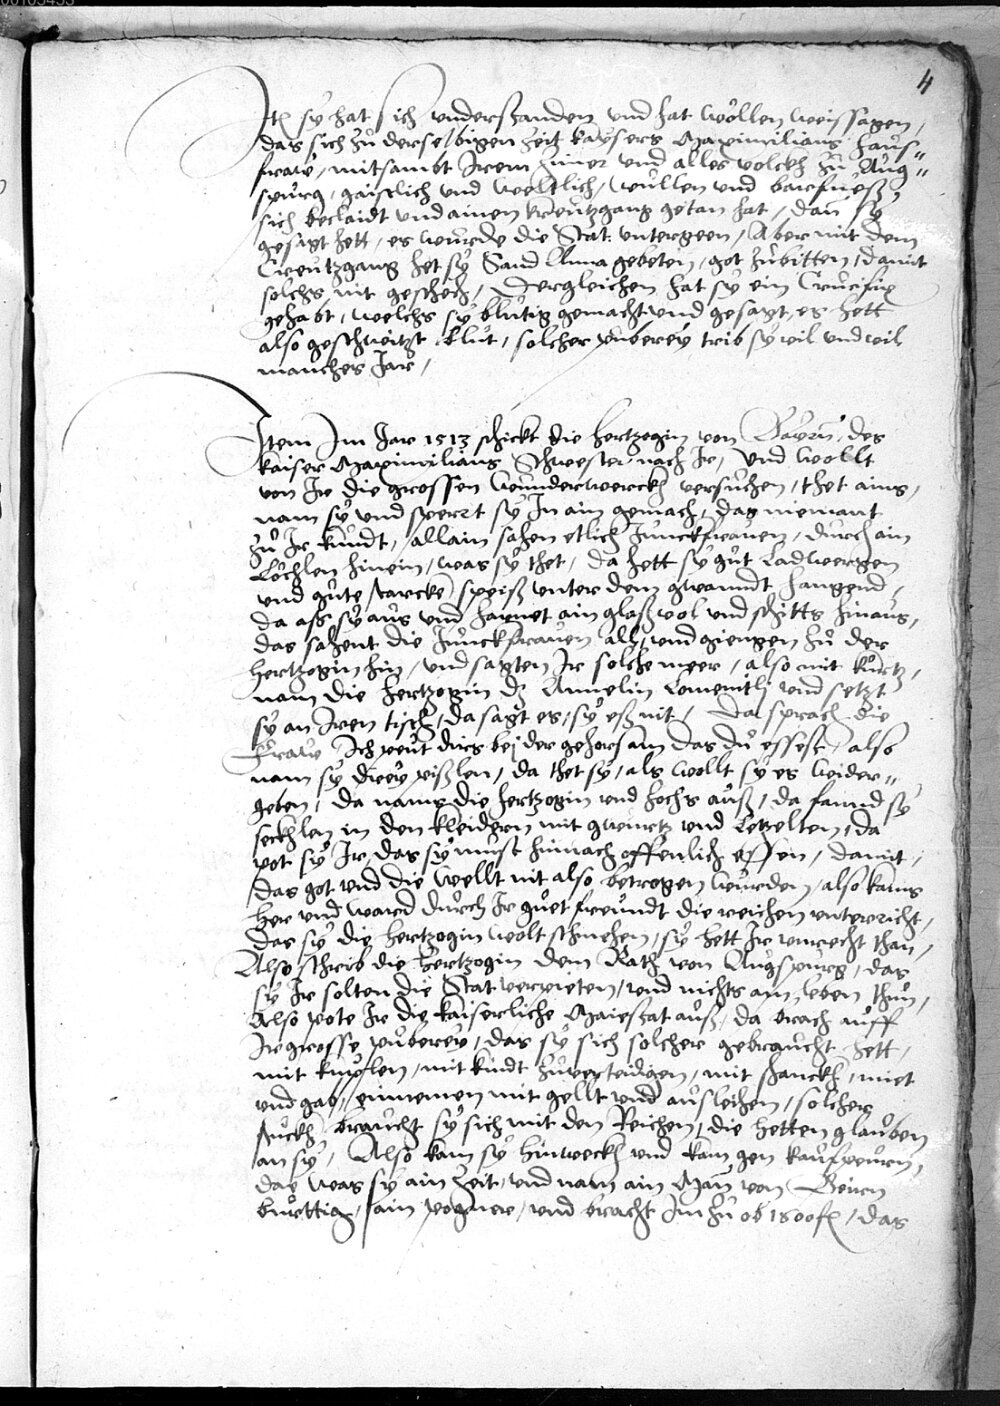 4
Ite sy hat sich understanden und hat wöllen weissagen,
das sich zu derselbigen Zeit kaysers Maximilians haus-
fraw, mitsambt Irem Zimer und alles volckh zu Aug-
spurg, gaistlich und weltlich, wullen und barfuess,
sich beclaidt und ainen kreutzgang getan hat, dan sy
gesagt hett, es wurde die Stat untergeen, Aber mit dem
Creutzgang het sy Sand Anna gebeten, got zubitten, damit
solchs nit geschech, Dergleichen hat sy ein Crucifix
gehabt, welchs sy blutig gemacht und gesagt, es hett
also geschwitzt blut, solcher puberey trib sy vil und vil
manches Jar,
Item Im Jar 1513 schickt die hertzogin von Bayrn, des
kaiser Maximilians Schwester nach Ir, und wollt
von Ir die grossen wunderwerckh versuchen, thet ains,
nam sy und sperrt sy In ain gemach, das niemant
zu Ir kundt, allain sahen etlich Junckfrauen, durch ain
Löchlen hinein, was sy thet, da hett sy gut Ladwergen
und gute starcke speiß unter dem gwanndt hangend,
da aß sy aus und harnet ain glaß vol und schitts hinaus,
das sahent die Junckfrauen all, und giengen zu der
hertzogin hin, und sagten Ir solche meer, also mit kurtz,
nam die hertzogin dz Annelin Lomenitlj und setzt
sy an Iren tisch, da sagt es, sy eß nit, Da sprach die
Fraw Ich peut dirs bej der gehorsam das du essest, also
nam sy drey pißlen, da thet sy, als wollt sy es wider-
geben, da nams die hertzogin und hochs auß, da fannd sy
seckhlen in den kleidern mit gwurtz und Letzelten, da
pot sy Ir, das sy must hinnach offenlich essen, damit,
das got und die wellt nit also betrogen wurden, also kams
her und ward durch Ir guet freundt die reichen unterricht,
das sy die hertzogin wolt schmehen, sy hett Ir unrecht than,
Also schrib die hertzogin dem Rath von Augspurg, das
sy Ir solten die Stat verpieten, und nichts am leben thun,
Also pote Ir die kaiserliche Maiestat auß, da brach auff
Ir grosse puberey, das sy sich solcher gebraucht hett,
mit kuplen, mit kindt zuverteidigen, mit schanckh, miet
und gab, einnemen mit gellt und ausleihen, solcher
stuckh braucht sy sich mit den Reichen, die hetten glauben
an sy, Also kam sy hinweckh und kam gen kaufpeurn,
da was sy ain Zeit, und nam ain Man von
burttig, ain pogner, und bracht Im zu ob 1500 fl, das